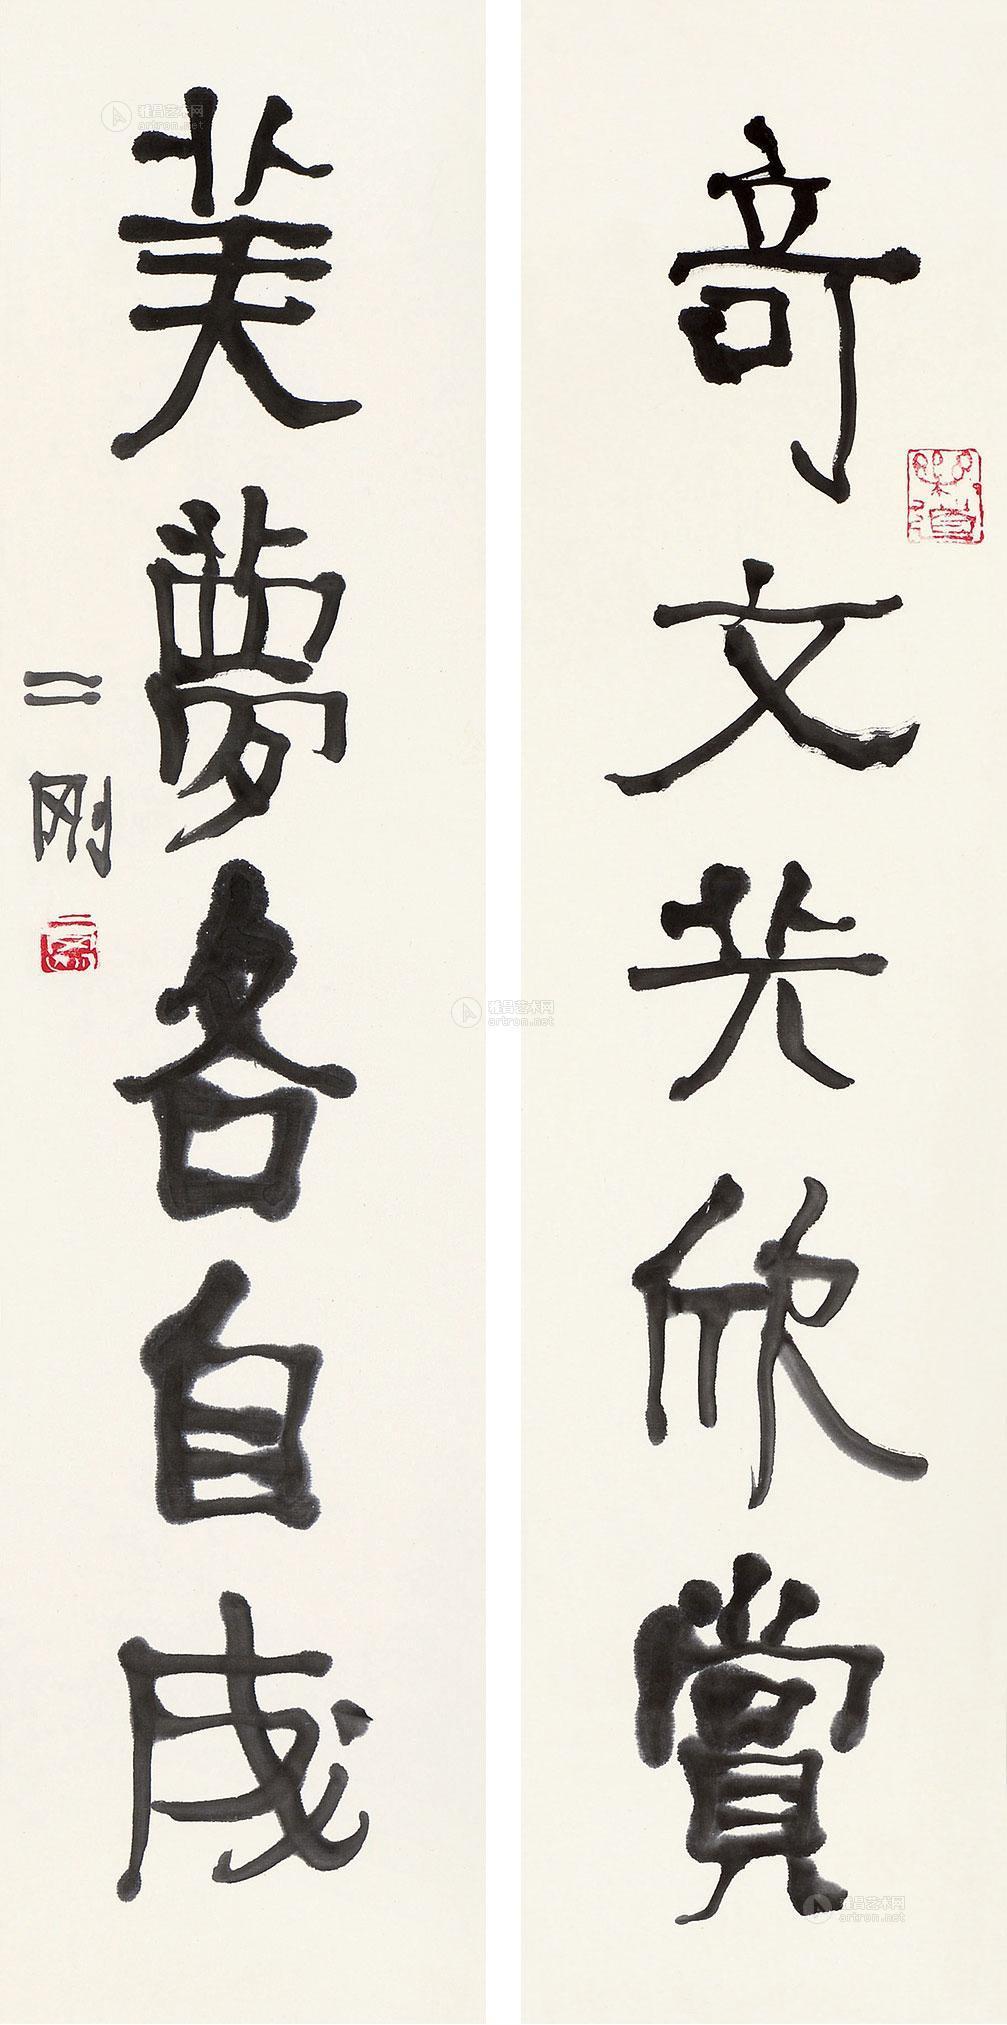 奇文共欣赏
美梦各自成
二刚
雅昌艺术网
artron.net
雅昌艺术网
artron.net
雅昌艺术网
artron.net